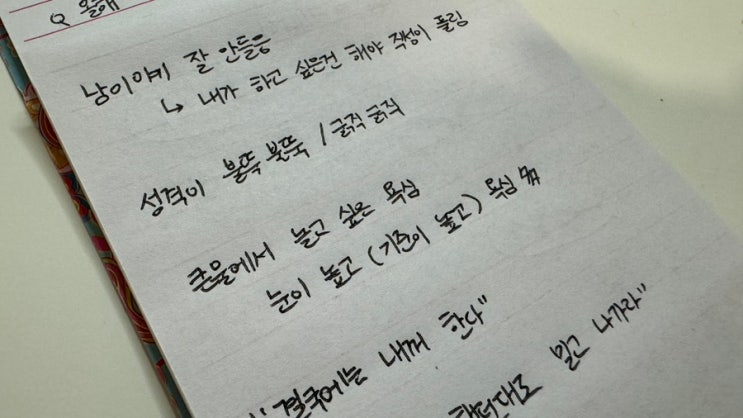 Q 올해
남이야기 잘 안들음
↳ 내가 하고 싶은건 해야 직성이 풀림
성격이 불뚝불뚝 / 굵직굵직
큰물에서 놀고 싶은 욕심
눈이 높고 (기준이 높고) 욕심 多
"결국에는 내꺼 한다"
밀고 나가라"